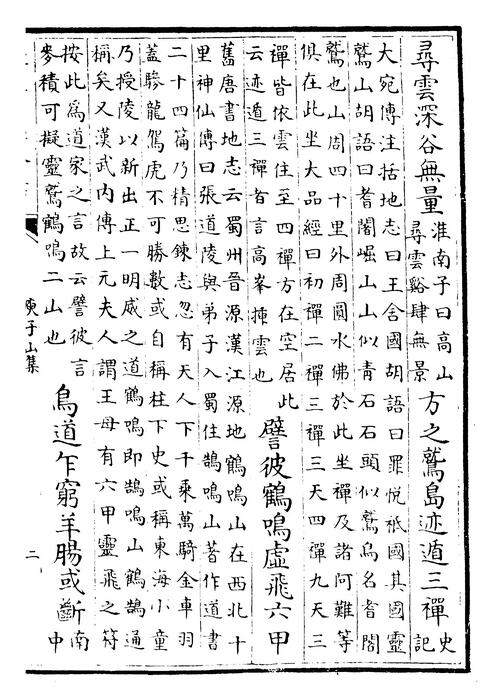 尋雲深谷無量淮南子曰高山尋雲谿肆無景方之鷲島迹遁三禪史記
大宛傳注括地志曰王舍國胡語曰罪悅祇國其國靈
鷲山胡語曰耆闍崛山山似青石石頭似鷲鳥名耆闍
鷲也山周四十里外周圓水佛於此坐禪及諸阿難等
俱在此坐大品經曰初禪二禪三禪三天四禪九天三
禪皆依雲住至四禪方在空居此
云迹遁三禪者言高峯揷雲也譬彼鶴鳴虛飛六甲
舊唐書地志云蜀州晉源漢江源地鶴鳴山在西北十
里神仙傳曰張道陵與弟子入蜀住鵠鳴山著作道書
二十四篇乃精思鍊志忽有天人下千乘萬騎金車羽
蓋驂龍駕虎不可勝數或自稱柱下史或稱東海小童
乃授陵以新出正一明威之道鶴鳴即鵠鳴山鶴鵠通
稱矣又漢武內傳上元夫人謂王母有六甲靈飛之符
按此為道家之言故云譬彼言
麥積可擬靈鷲鶴鳴二山也鳥道乍窮羊腸或斷南中
庾子山集
二